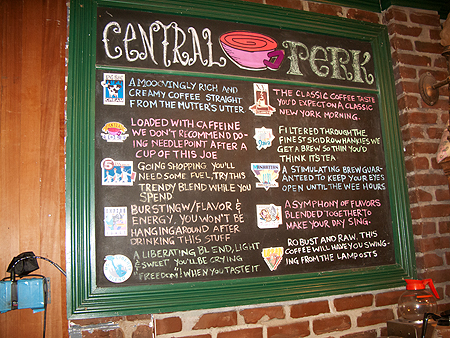 CENTRAL PERK
A MOOOVINGLY RICH AND
CREAMY COFFEE STRAIGHT
FROM THE MUTTER'S UTTER
LOADED WITH CAFFEINE
WE DON'T RECOMMEND DO-
ING NEEDLEPOINT AFTER A
CUP OF THIS JOE
GOING SHOPPING. YOU'LL
NEED SOME FUEL, TRY THIS
TRENDY BLEND WHILE YOU
SPEND
BURSTING W/FLAVOR &
ENERGY. YOU WON'T BE
HANGING AROUND AFTER
DRINKING THIS STUFF
A LIBERATING BLEND, LIGHT
& SWEET YOU'LL BE CRYING
"FREEDOM"! WHEN YOU TASTE IT
THE CLASSIC COFFEE TASTE
YOU'D EXPECT ON A CLASSIC
NEW YORK MORNING.
FILTERED THROUGH THE
FINEST SKID ROW HANKIES WE
GET A BREW SO THIN YOU'D
THINK ITS TEA
A STIMULATING BREW GUAR-
ANTEED TO KEEP YOUR EYES
OPEN UNTIL THE WEE HOURS
A SYMPHONY OF FLAVORS
BLENDED TOGETHER TO
MAKE YOUR DAY SING.
ROBUST AND RAW. THIS
COFFEE WILL HAVE YOU SWING-
ING FROM THE LAMPOSTS